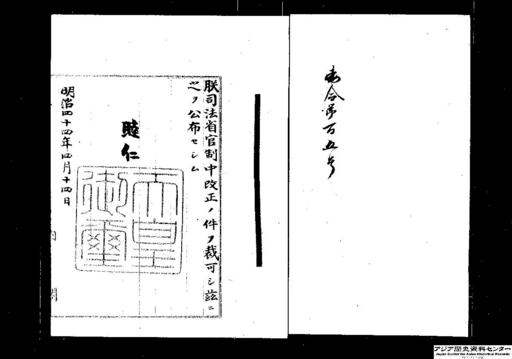 勅令第百五号
朕司法省官制中改正ノ件ヲ裁可シ茲ニ
之ヲ公布セシム
睦仁
天皇
御璽
明治四十四年四月十四日
内閣
アジア歴史資料センター
Japan Center for Asian Historical Records